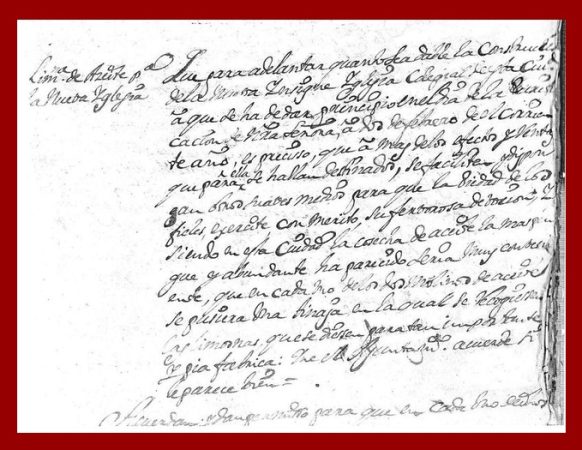 Lim.na de Azeite p.a
la Nueva Yglesia
Que para adelantar quanto sea dable la Construcci
de la Nueva Insigne Yglesia Colegial de esta Ciud
à que se ha de dar principio en el dia de la Purifi
cacion de nra señora, à dos de febrero de el Corrien
te año, es preciso, que à mas de los efectos
que para ella se hallan destinados, se faciliten y dispon
gan otros suaves medios para que la Piedad de los
fieles, execute con merito, su fervorosa devocion; Y
siendo en esta Ciudad la cosecha de azeite la mas pin
gue y abundante ha parecido seria muy conveni
ente, que en cada uno de los dos Molinos de azeite
se pusiera una tinaja en la qual se recogiesen
las limosnas, que se diesen para tan importante
y pia fabrica: The el Ayuntam.to acuerde si
le parece bien =
Acuerdan y dan permitto para que en cada uno de dhos